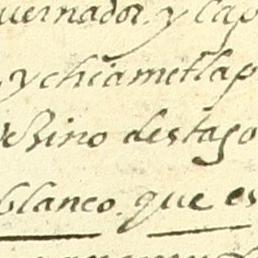 uernador y cap
y chiametlap
vezino destago
blanco. que es